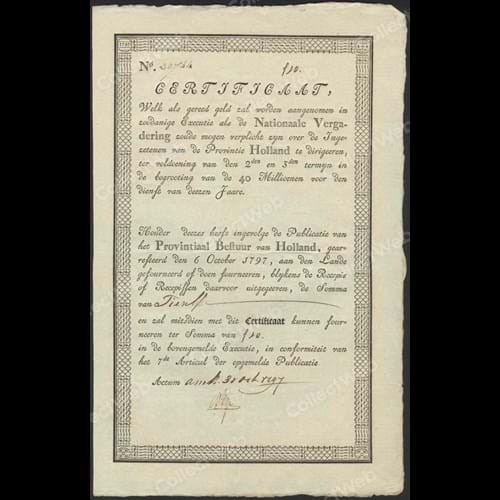 No. f10.
CERTIFICAAT,
Welk als gereed geld zal worden aangenomen in
zoodanige Executie als de Nationaale Verga-
dering zoude mogen verplicht zyn over de Inge-
zetenen van de Provintie Holland te dirigeeren,
ter voldoening van den 2den en 3den termyn in
de begrooting van de 40 Millioenen voor den
dienst van deezen Jaare.
Houder deezes heeft ingevolge de Publicatie van
het Provintiaal Bestuur van Holland, gear-
resteerd den 6 October 1797, aan den Lande
gefourneerd of doen fourneeren, blykens de Recepis
of Recepissen daarvoor uitgegeven, de Somma
van Tien
en zal mitsdien met dit Certificaat kunnen four-
neeren ter Somma van f10.
in de bovengemelde Executie, in conformiteit van
het 7de Articul der opgemelde Publicatie
Actum 30 oct 1797